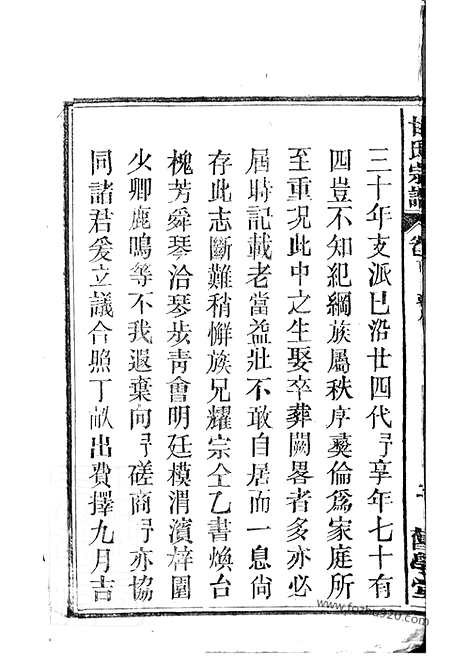 氏宗譜
三十年支派已沿廿四代予享年七十有
四豈不知紀綱族屬秩序彜倫爲家庭所
至重况此中之生娶卒葬闕畧者多亦必
屆時記載老當益壯不敢自居而一息尙
存此志斷難稍懈族兄耀宗仝乙書煥台
槐芳舜琴洽琴步青會明廷模渭濱梓圍
少卿鹿鳴等不我遐棄向予磋商予亦協
同諸君爰立議合照丁畝出費擇九月吉
www.fozhu920.com